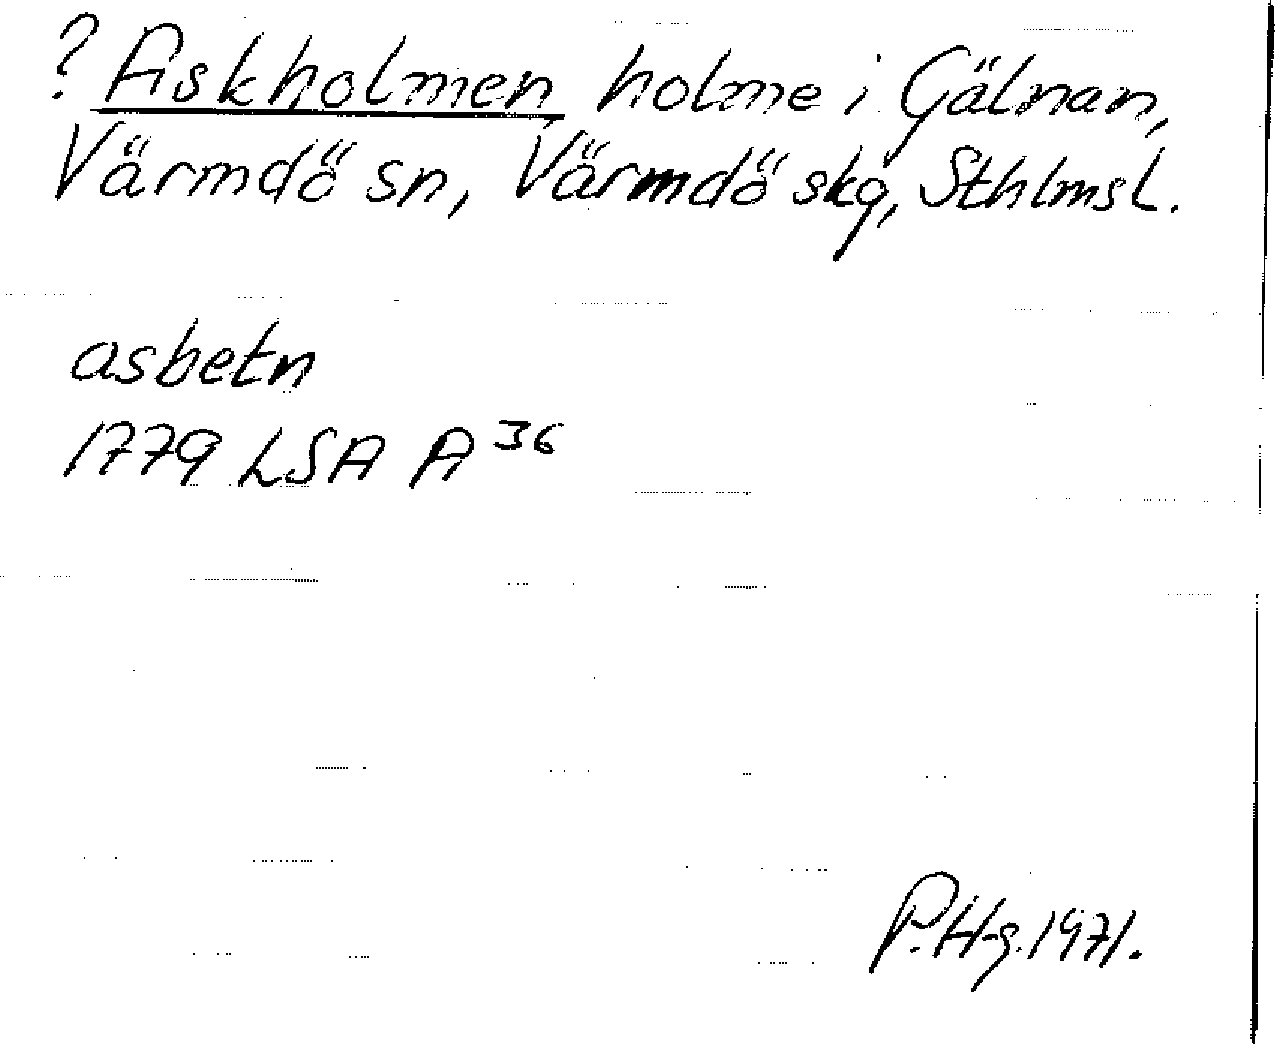 ? Fiskholmen holme i Gälnan,
Värmdö sn, Värmdö skg, Sthlmsl.
asbetn
1779 LSA A 36
P. H-g. 1971.